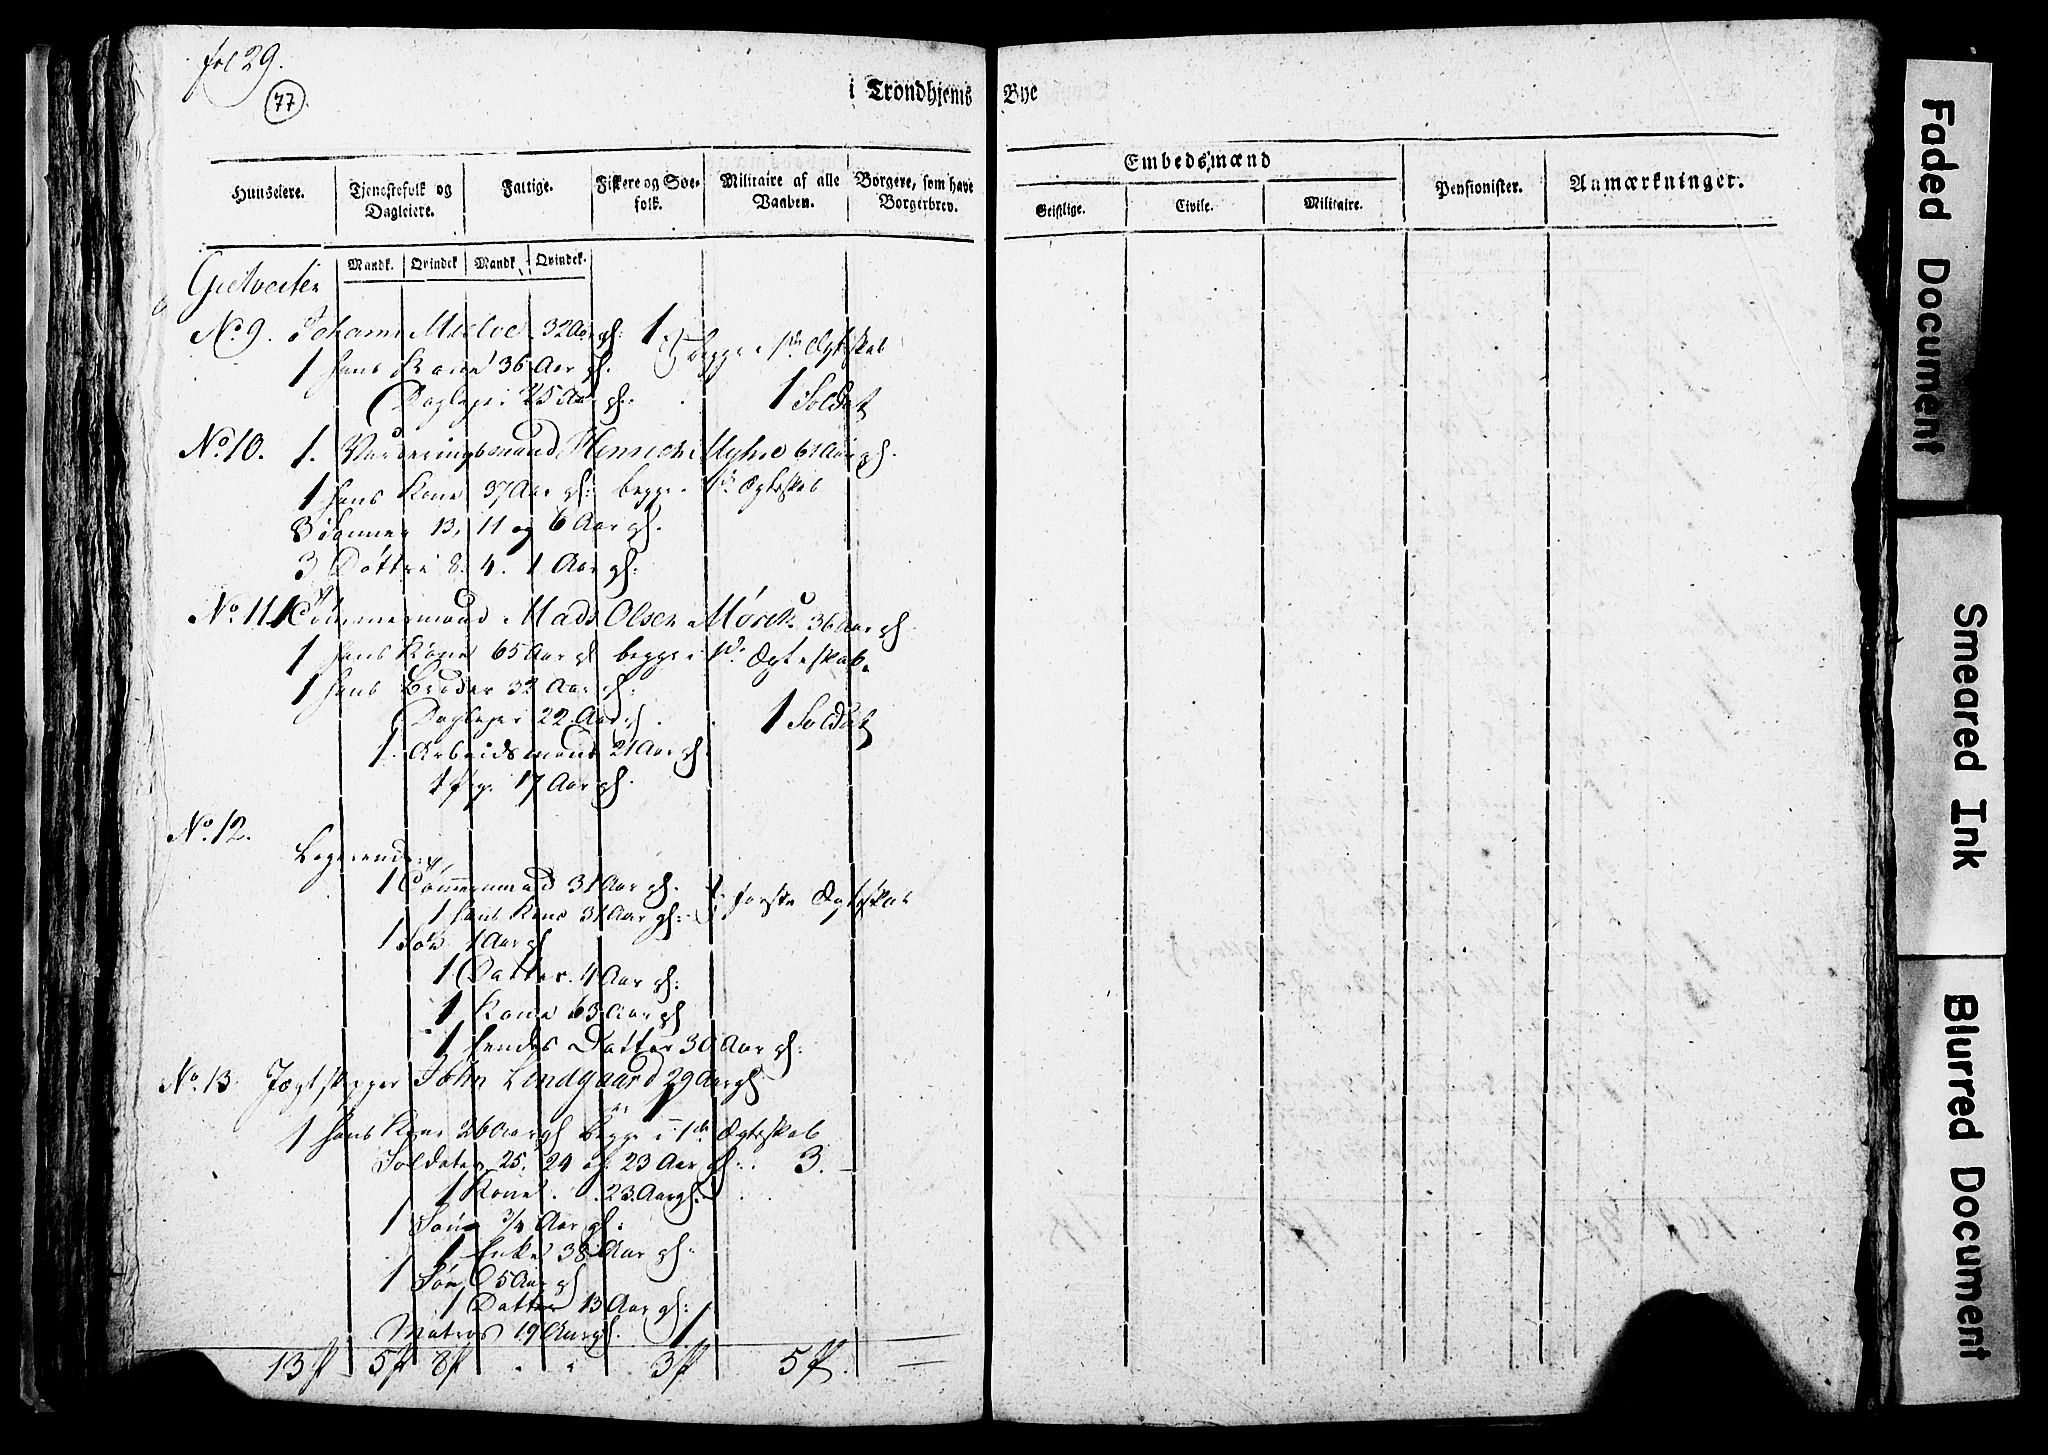 fol 29.
77
i Trondhjems Bye
Huuseiere.
Tjenestefolk og Dagleiere.
Fattige.
Fiskere og Søe-folk.
Militaire af alle Vaaben.
Borgere, som have Borgerbrev.
Embedsmænd
Geistlige.
Civile.
Militaire.
Pensionister.
Anmærkninger.
Mandk. Qvindek Mandk. Qvindek.
No. 9. Johan Mielve 32 Aar gl: 1
1 hans Kone 36 Aar gl. begge i 1ste Ægteskab
Dagleyer 25 Aar gl: 1 Soldat
No. 10. 1. Vurderingsmand Henrich Myhre 61 Aar gl.
1 hans Kone 37 Aar gl: begge i 1ste Ægteskab
3 Sönner 13, 11 og 6 Aar gl.
3 Døttre 8. 4. 1 Aar gl:
No. 11. 1 Tömmermand Mads Olsen Mørch 36 Aar gl.
1 hans Kone 65 Aar gl begge i 1ste Ægteskab.
1 hans Broder 32 Aar gl:
Dagleyer 22 Aar gl. 1 Soldat
1. Arbeidsmand 21 Aar gl.
1 Pige 17 Aar gl.
No. 12.
Logerende:
1 Tömmermand 31 Aar gl.
1 hans Kone 31 Aar gl: i første Ægteskab
1 Søn 1 Aar gl
1 Datter 4 Aar gl:
1 Kone 63 Aar gl
1 hendes Datter 30 Aar gl:
No. 13. Jægtskipper John Lindgaard 29 Aar gl 1
1 hans Kone 26 Aar gl begge i 1ste Ægteskab
Soldater 25. 24 og 23 Aar gl: 3.
1 Kone 23 Aar gl.
1 Søn 3/4 Aar gl:
1 Enke 38 Aar gl:
1 Søn 5 Aar gl
1 Datter 13 Aar gl:
Matros 19 Aar gl. 1
13 5 8 3 5 —
Faded Document
Smeared Ink
Blurred Document